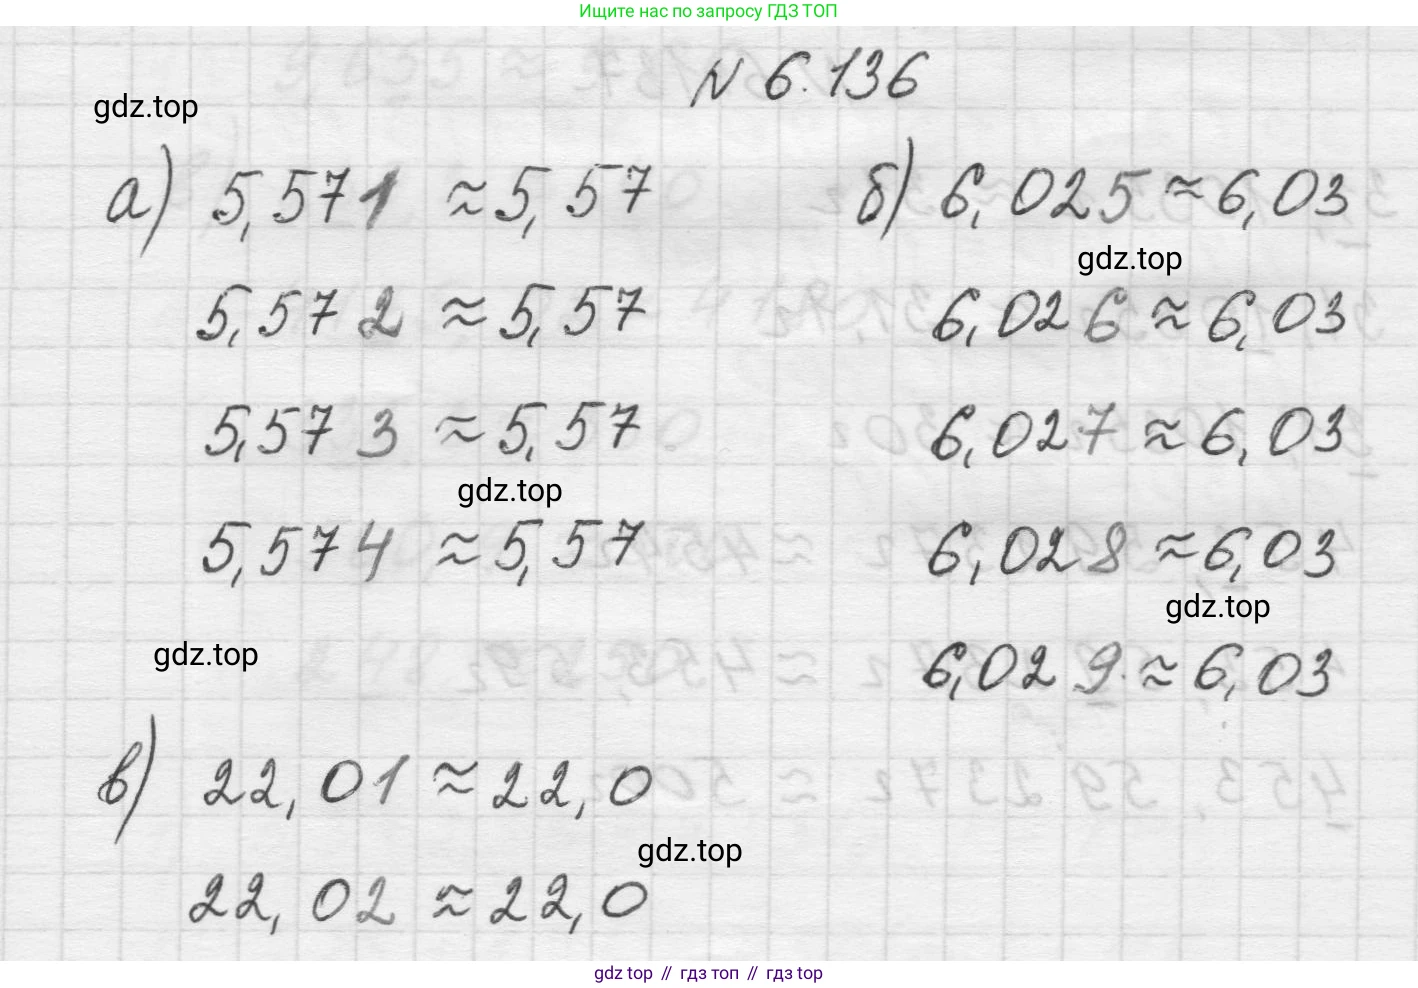 Ищите нас по запросу ГДЗ ТОП
N 6.136
gdz.top
а) 5,571 ≈ 5,57
5,572 ≈ 5,57
5,573 ≈ 5,57
gdz.top
5,574 ≈ 5,57
б) 6,025 ≈ 6,03
gdz.top
6,026 ≈ 6,03
6,027 ≈ 6,03
6,028 ≈ 6,03
gdz.top
6,029 ≈ 6,03
gdz.top
в) 22,01 ≈ 22,0
gdz.top
22,02 ≈ 22,0
gdz top // гдз топ // gdz top